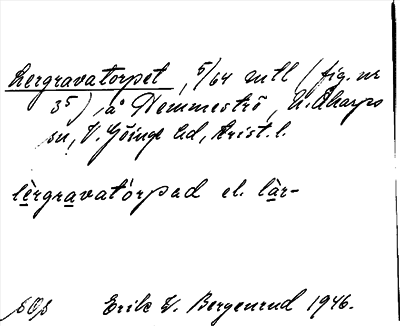 Lergravatorpet, 5/64 mtl (fig. nr
35), å Hemmeströ, N. Åkarps
sn, V. Göinge hd, Krist. l.
lèrgravatòrpad el. làr-
SOS Erik V. Bergenrud 1946.